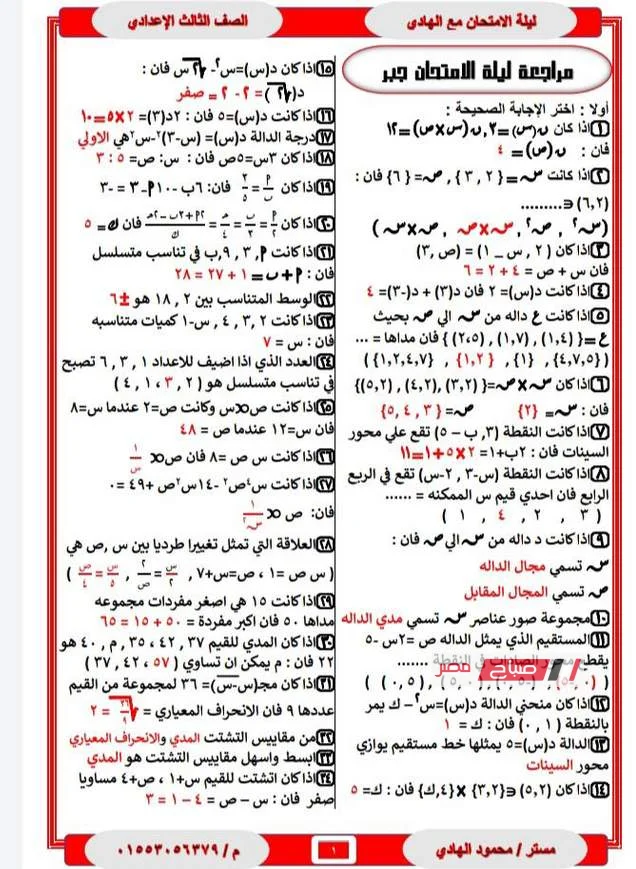 ليلة الامتحان مع الهادى
الصف الثالث الإعدادي
مراجعة ليلة الامتحان جبر
أولا : اختر الإجابة الصحيحة :
١ اذا كان ن(س) = ٣ , ن(س × ص) = ١٢
فان : ن(ص) = ٤
٢ اذا كانت س = {٣ , ٢} , ص = {٦} فان :
(٦,٢) ∈ .........
(س٢ , ص٢ , س×ص , ص×س)
٣ اذا كان (٢ , س – ١) = (ص ,٣)
فان س + ص = ٤ + ٢ = ٦
٤ اذا كانت د(س)= ٢ فان د(٣) + د(-٣)= ٤
٥ اذا كانت ع داله من س الي ص بحيث
ع = {(١,٤) , (١,٧) , (٢،٥)} فان مداها = ...
({٤,٧,٥} , {١} , {١,٢} , {١,٢,٤,٧})
٦ اذا كان س×ص={(٢,٣) ,(٢,٤) , (٥,٢)}
فان : س= {٢} ص= {٣ , ٤ ,٥}
٧ اذا كانت النقطة (٣, ب – ٥) تقع علي محور
السينات فان : ٢ب+١= ٢×٥+١=١١
٨ اذا كانت النقطة (س-٣ , ٢-س) تقع في الربع
الرابع فان احدي قيم س الممكنه = ......
(٣ , ٢ , ٤ , ١)
٩ اذا كانت د داله من س الي ص فان :
س تسمي مجال الداله
ص تسمي المجال المقابل
١٠ مجموعة صور عناصر س تسمي مدي الداله
١١ المستقيم الذي يمثل الداله ص =٢س -٥
يقطع محور الصادات في النقطة .......
صباح مصر
١٢ اذا كان منحني الدالة د(س)=س٢– ك يمر
بالنقطة (١ , ٠) فان : ك = ١
١٣ الدالة د(س)=٥ يمثلها خط مستقيم يوازي
محور السينات
١٤ اذا كان (٥,٢) ∈ {٣,٢}×{٤,ك} فان : ك= ٥
١٥ اذا كان د(س)=س٢- √٢ س فان :
د(√٢)= ٢ - ٢ = صفر
١٦ اذا كانت د(س)=٥ فان : ٢د(٣)= ٢×٥=١٠
١٧ درجة الدالة د(س)= (س-٣)٢-س٢ هي الاولي
١٨ اذا كان ٣س=٥ص فان : س: ص= ٥ : ٣
١٩ اذا كان م/ب = ٢/٥ فان: ٦ب -١٠٠م-٣ = -٣
٢٠ اذا كان م/٢ = ب/٣ = ح/٤ = (٢م+٢ب-٢ح)/ك فان ك= ٥
٢١ اذا كانت م, ٣ , ٩,ب في تناسب متسلسل
فان : م+ب= ١ + ٢٧ = ٢٨
٢٢ الوسط المتناسب بين ٢ , ١٨ هو ±٦
٢٣ اذا كانت ٢ ,٣ , ٤ , س-١ كميات متناسبه
فان : س = ٧
٢٤ العدد الذي اذا اضيف للاعداد ١ , ٣ , ٦ تصبح
في تناسب متسلسل هو (٢ , ٣ , ١ , ٤)
٢٥ اذا كانت ص∝س وكانت ص=٢ عندما س=٨
فان س=١٢ عندما ص = ٤٨
٢٦ اذا كانت س ص = ٨ فان ص∝ ١/س
٢٧ اذا كانت س٤ص٢ -١٤س٢ص +٤٩ =٠
فان: ص ∝ ١/س٢
٢٨ العلاقة التي تمثل تغييرا طرديا بين س ,ص هي
(س ص =١ , ص=س+٧ , س/٢ = ٢/ص , س/٥ = ص/٤)
٢٩ اذا كانت ١٥ هي اصغر مفردات مجموعه
مداها ٥٠ فان اكبر مفردة = ٥٠ + ١٥ = ٦٥
٣٠ اذا كان المدي للقيم ٣٧ , ٤٢ , ٣٥ , م , ٤٠ هو
٢٢ فان : م يمكن ان تساوي (٥٧ , ٤٢ , ٣٧)
٣١ اذا كان مجـ(س-س̄)= ٣٦ لمجموعة من القيم
عددها ٩ فان الانحراف المعياري = √٣٦/٩ = ٢
٣٢ من مقاييس التشتت المدي والانحراف المعياري
٣٣ ابسط واسهل مقاييس التشتت هو المدي
٣٤ اذا كان اتشتت للقيم س+١ , ص+٤ مساويا
صفر فان : س – ص = ٤ – ١ = ٣
مستر / محمود الهادي
١
م / ٠١٥٥٣٠٥٦٣٧٩